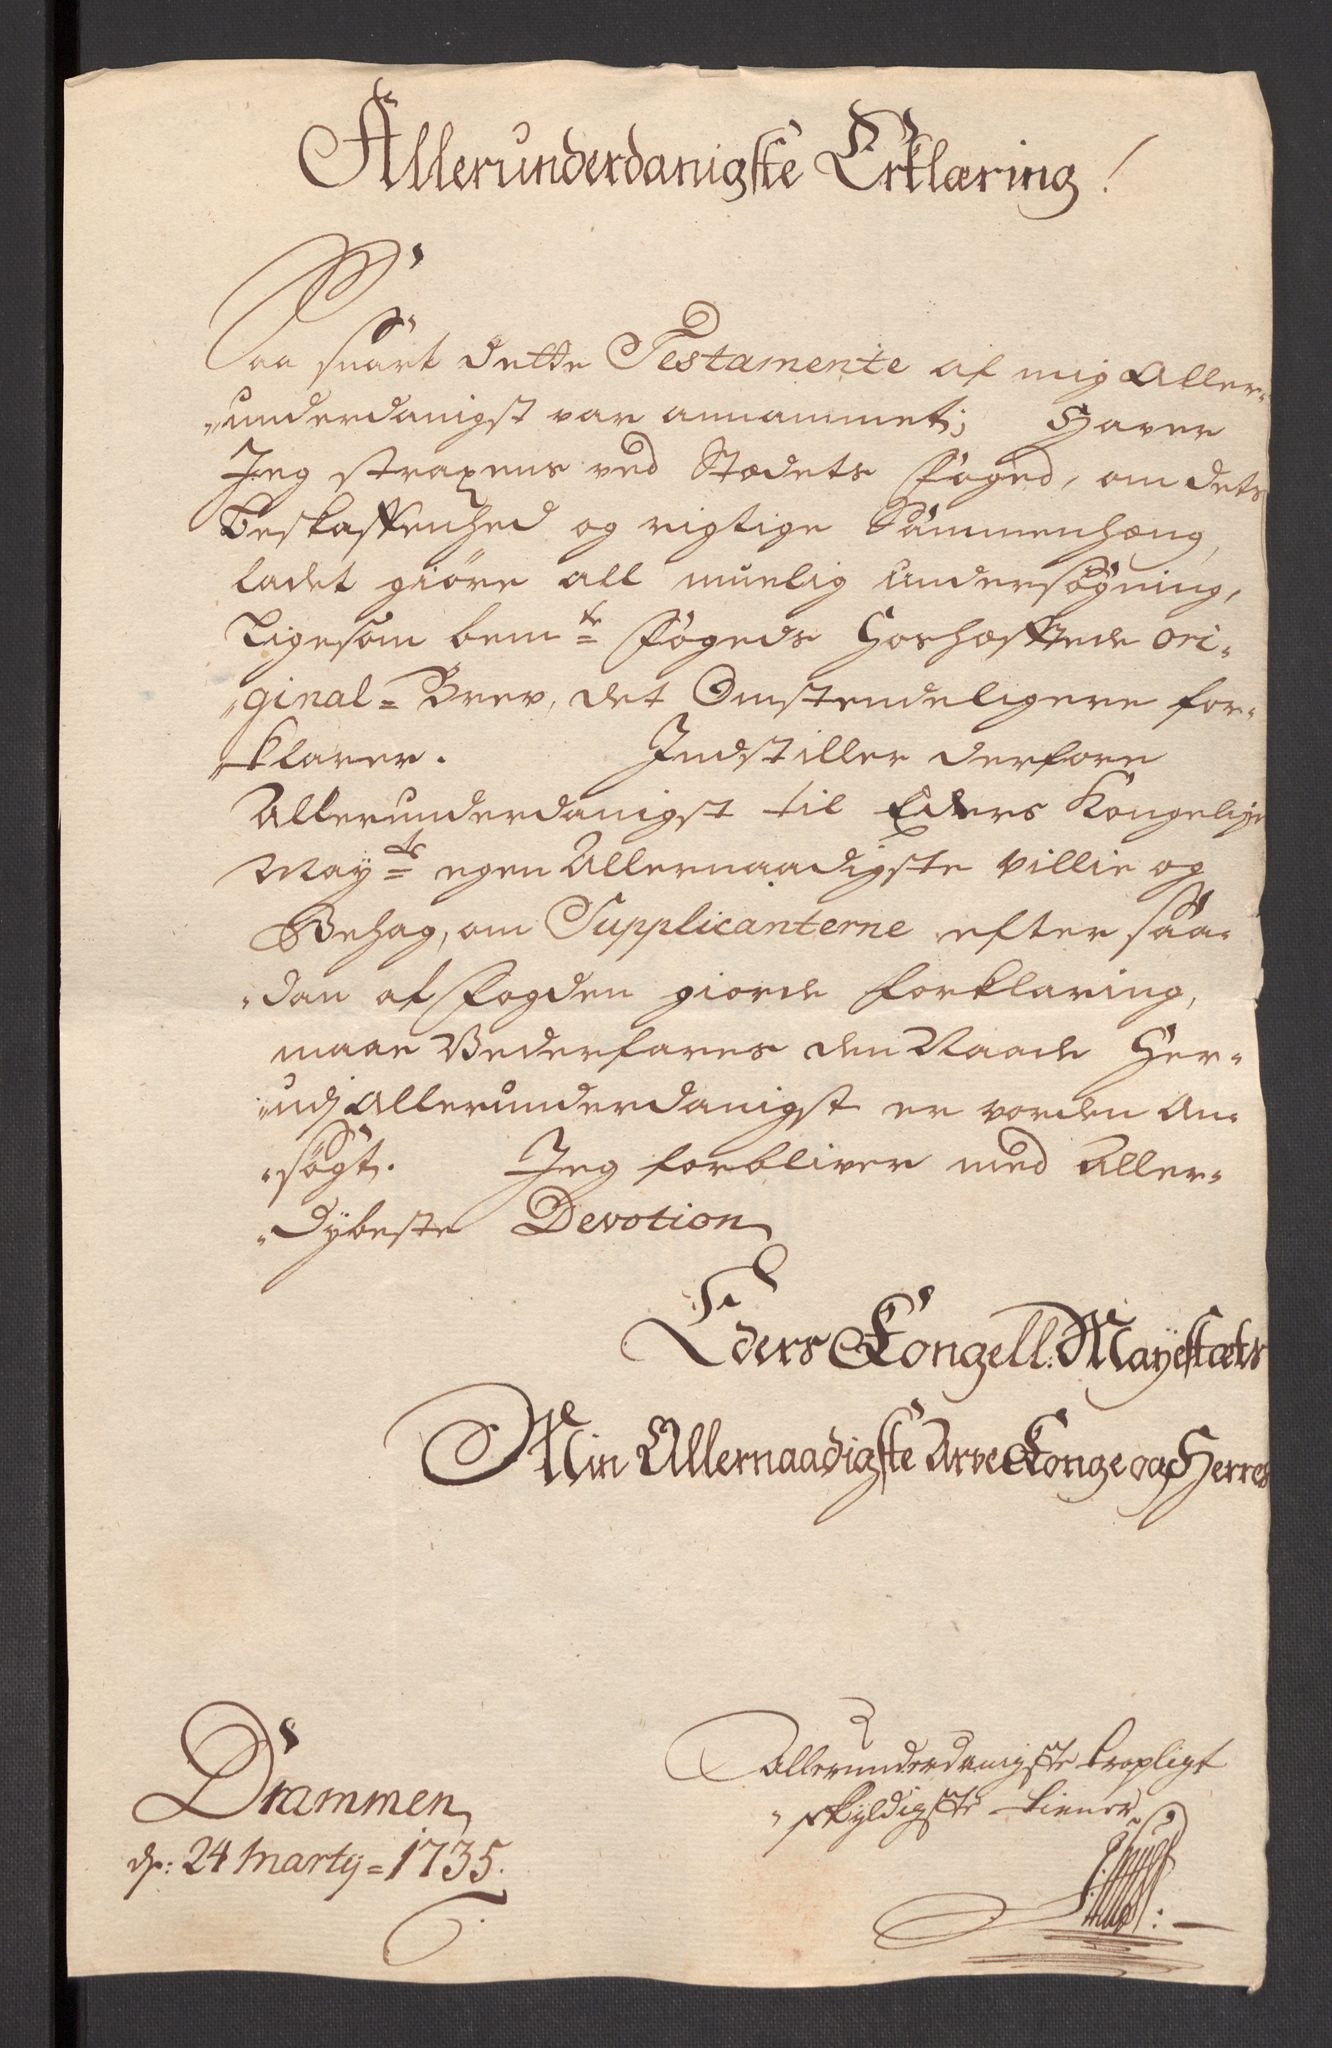 Allerunderdanigste Erklæring!
Saa snart dette Testamente af mig Aller-
underdanigst var annammet; Haver
Jeg straxens ved Stædets Foged, om dets
Beskaffenhed og rigtige Sammenhæng,
ladet giöre all muelig undersögning,
Ligesom bem.te Fogeds Hoshæfftede ori-
ginal= Brev, det Omstendeligere for-
klarer. Indstiller derfore
Allerunderdanigst til Eders Kongelige
May.ts egen Allernaadigste Villie og
Behag, om Supplicanterne efter saa-
dan af Fogden giorde forklaring,
maae Vederfares den Naade Her-
udj Allerunderdanigst er vorden An-
sögt. Jeg forbliver med Aller-
dÿbeste Devotion
Eders Kongell: Mayestæts
Min Allernaadigste Arve Konge og Herres
Drammen
dn: 24 Martij = 1735.
Allerunderdanigste troepligt
skyldigste tiener